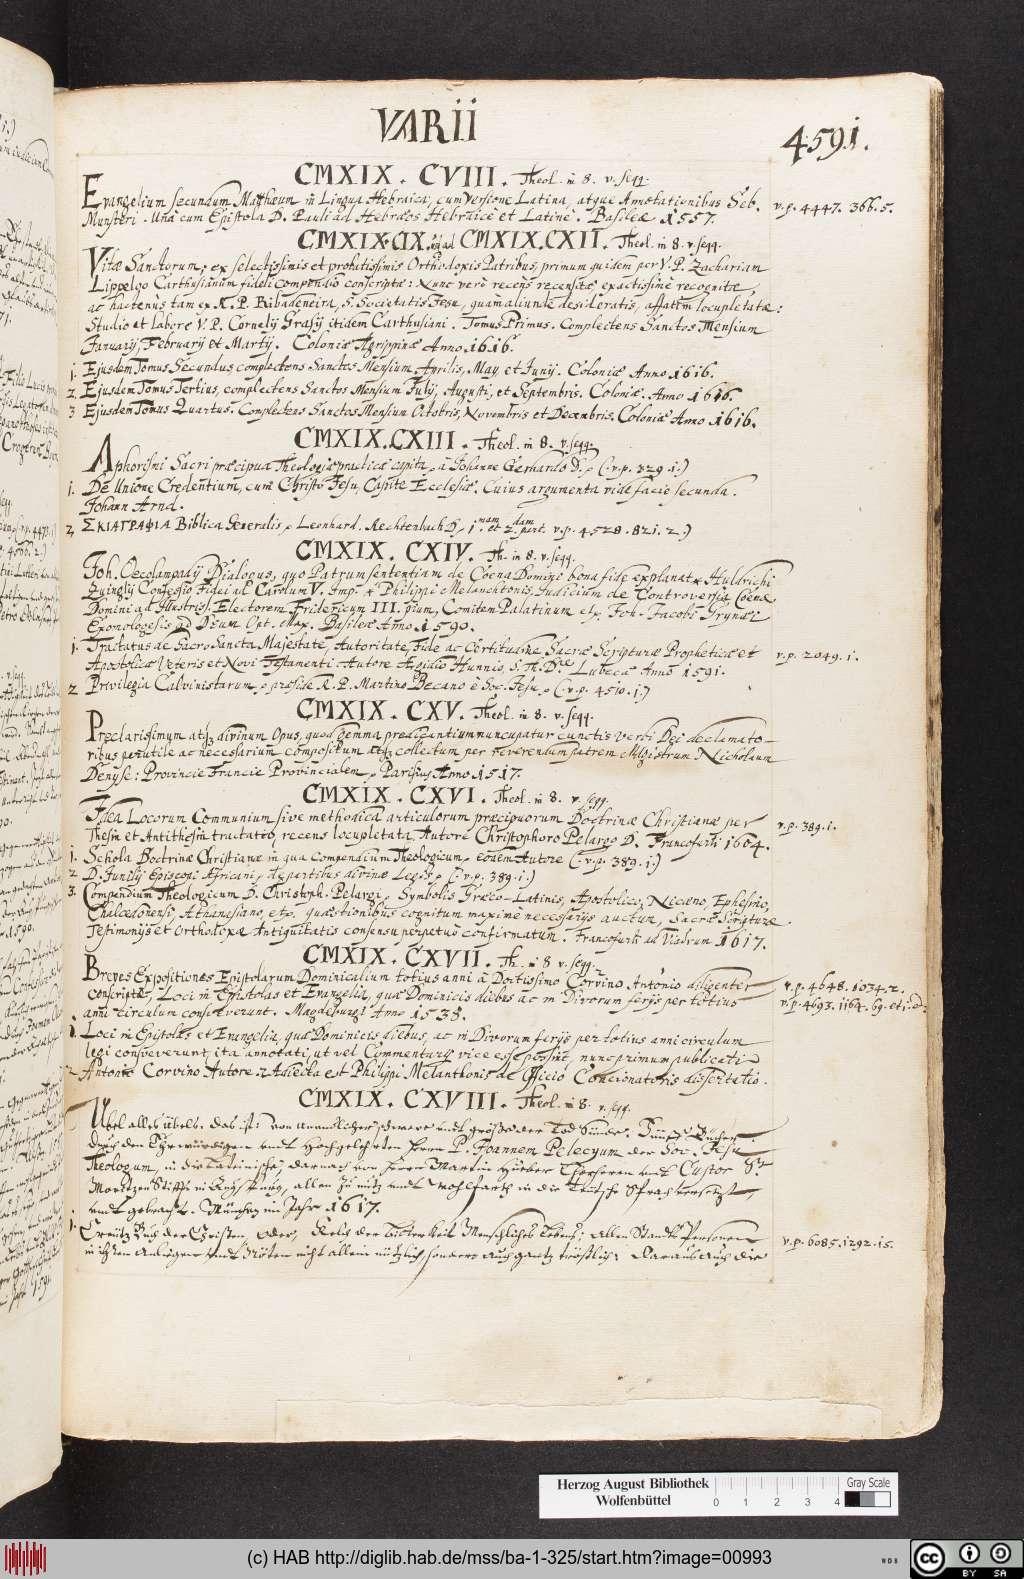 VARII
4591.
CMXIX. CVIII. Theol. in 8. v. seqq.
Evangelium secundum Matthæum in Lingua Hebraica, cum Versione Latina, atque Annotationibus Seb.
Munsteri. Unà cum Epistola D. Pauli ad Hebræos Hebraicè et Latinè. Basileæ 1557.
v.p. 4447. 366. 5.
CMXIX. CIX. ad CMXIX. CXII. Theol. in 8. v. seqq.
Vitæ Sanctorum; ex selectissimis et probatissimis Orthodoxis Patribus, primum quidem per V. P. Zachariam
Lippelgo Carthusianum fideli compendio conscriptæ: Nunc verò recens recensitæ exactissimè recognitæ,
ac hactenus tam ex R. P. Ribadeneira, S. Societatis Jesu, quàm aliunde desideratis, affatim locupletatæ:
Studio et labore V. P. Cornelij Grasij itidem Carthusiani. Tomus Primus. Complectens Sanctos Mensium
January, February et Martij. Coloniæ Agrippinæ Anno 1616.
1. Ejusdem Tomus Secundus complectens Sanctos Mensium Aprilis, May et Junij. Coloniæ Anno 1616.
2. Ejusdem Tomus Tertius, complectens Sanctos Mensium Julij, Augusti, et Septembris. Coloniæ. Anno 1616.
3 Ejusdem Tomus Quartus. Complectens Sanctos Mensium Octobris, Novembris et Decembris. Coloniæ Anno 1616.
CMXIX. CXIII. Theol. in 8. v. seqq.
Aphorismi Sacri præcipua Theologiæ practicæ capita, à Johanne Gerhardo D. (: v.p. 229. 1.)
1. De Unione Credentium, cum Christo Jesu, Capite Ecclesiæ. Cuius argumenta vide facie secunda.
Johann Arnd.
2, ΣΚΙΑΓΡΑΦΙΑ Biblica Generalis, Leonhard. Rechtenbach D, 1.mam et 2.dam part. v.p. 4528. 821. 2.)
CMXIX. CXIV. Th. in 8. v. seqq.
Joh. Oecolampadij Dialogus, quo Patrum sententiam de Coena Domini bona fide explanat, Huldrichi
Zuinglij Confessio Fidei ad Carolum V. Imp. Philippi Melanchtonis Judicium de Controversia Coenæ
Domini ad Illustriss. Electorem Fridericum III. pium, Comitem Palatinum etc. Joh. Jacobi Grynæi
Exomologesis ad Deum Opt. Max. Basileæ Anno 1590.
1. Tractatus de Sacro Sancta Majestate, Autoritate, Fide ac Certitudine Sacræ Scripturæ Propheticæ et
Apostolicæ Veteris et Novi Testamenti Autore Ægidio Hunnio, S. Th. D.re Lubecæ Anno 1591.
v.p. 2049. 1.
2 Privilegia Calvinistarum, præside R. P. Martino Becano è Soc. Jesu, (: v.p. 4510. 1.)
CMXIX. CXV. Theol. in 8. v. seqq.
Preclarissimum atque divinum Opus, quod Gemma predicantium nuncupatur cunctis Verbi Dei declamato-
ribus perutile ac necessarium compositum atque collectum per reverendum patrem Magistrum Nicholaum
Denyse: Provincie Francie Provincialem, Parisius Anno 1517.
CMXIX. CXVI. Theol. in 8. v. seqq.
Idea Locorum Communium sive methodica articulorum præcipuorum Doctrinæ Christianæ per
Thesin et Antithesin tractatio, recens locupletata, Autore Christophoro Pelargo D. Francofurti 1604.
v.p. 389. 1.
1. Schola Doctrinæ Christianæ in qua Compendium Theologicum, eodem Autore (: v.p. 389. 1.)
2 D. Junilij Episcopi Africani, de partibus divinæ Legis, (: v.p. 389. 1.)
3. Compendium Theologicum D. Christoph. Pelargi, Symbolis Græco-Latinis, Apostolico, Niceno, Ephesino,
Chalcedonensi, Athanasiano, etc. quæstionibus cognitum maximè necessarijs auctum, Sacræ Scripturæ
Testimonijs et Orthodoxæ Antiquitatis consensu perpetuò confirmatum. Francofurti ad Viadrum 1617.
CMXIX. CXVII. Th. in 8 v. seqq.
Breves Expositiones Epistolarum Dominicalium totius anni à Doctissimo Corvino Antonio diligenter
conscriptæ, Loci in Epistolas et Evangelia, quæ Dominicis diebus ac in Divorum ferijs per totius
anni circulum consueverunt. Magdeburgi Anno 1538.
v.p. 4648. 1034. 2.
v.p. 4693. 1164. 69. et 1. ed.
1. Loci in Epistolas et Evangelia, quæ Dominicis diebus, ac in Divorum ferijs per totius anni circulum
legi consueverunt, ita annotati, ut vel Commentarij vice esse possint, nunc primum publicati
2 Antonio Corvino Autore. Adiecta est Philippi Melanthonis de Officio Concionatoris dissertatio.
CMXIX. CXVIII. Theol. in 8. v. seqq.
Übel alles übels. das ist: von der Todt Sünde. Bücher.
durch den Ehrwürdigen undt Hochgelehrten Herrn P. Joannem Pelecyum der Soc. Jesu
Theologum, in die Lateinische, darnach von Herrn Martin Hueber Chorherrn undt Custor St.
Moritzen Stifft in Augspurg, allen zu nutz undt wohlfarth in die Teutsche Sprach versetzt,
undt gebracht. München im Jahr 1617.
1. Creütz Buch der Christen, oder, Kelch der Bitterkeit Menschliches Lebens; allen Standts Personen
in ihren undt Nöten nicht allein nützlich, sonders auch gantz tröstlich: Daraus auch die
v.p. 6085. 1292. 15.
Herzog August Bibliothek
Wolfenbüttel
0 1 2 3 4
Gray Scale
(c) HAB http://diglib.hab.de/mss/ba-1-325/start.htm?image=00993
WDB
CC BY SA